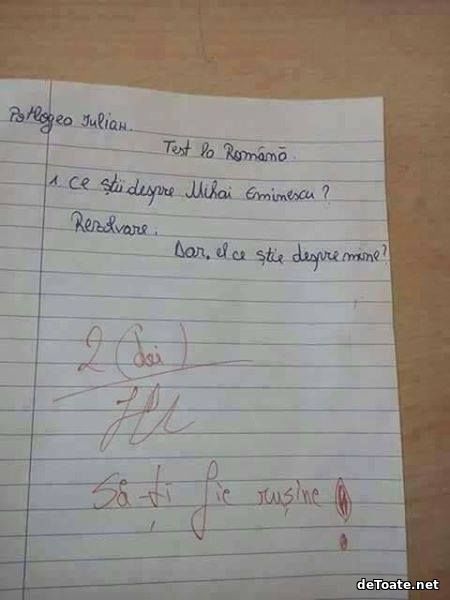 Potlogea Iulian.
Test la Română.
1. Ce știi despre Mihai Eminescu?
Rezolvare.
Dar, el ce știe despre mine?
2 (doi)
Să-ți fie rușine!
deToate.net